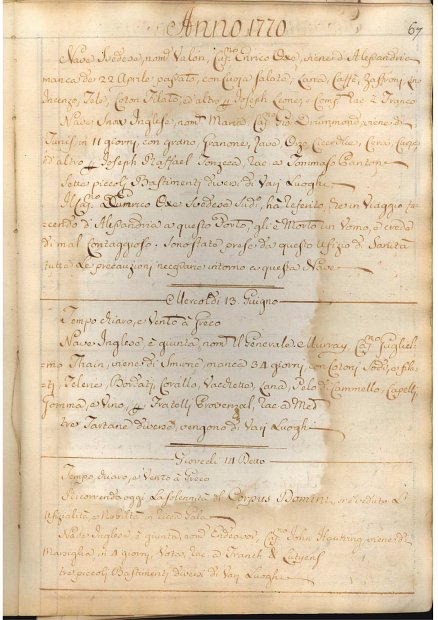 Anno 1770
67
Nave Svedese, nom.ta Valon, Cap.no Enrico Oxe, viene d'Alessandria
manca de 22 Aprile passato, con Cuoia salate, Lana, Caffè, Zaffroni,
Incenzo, Tele, Coton Filato, ed altro p. Joseph Leone, e Comp. Rac. a Franco
Nave Snow Inglese, nom.ta Maria, Cap.no Gio. Drummond, viene di
Tunis in 11 giorni, con grano, Granone, Fava, Orzo, Cicerchie, Cera,
ed altro p. Joseph Raffael Fonzeca, rac. a Tommaso Pantone
Sette piccoli Bastimenti diversi di Varj Luoghi
Il Cap.no Enrico Oxe Svedese Sud.o, ha referito, che in Viaggio fa-
cendo d'Alessandria a questo Porto, gli è Morto un Uomo, e crede
di mal Contaggioso: Sono state prese da questo Ufizio di Sanità
tutte Le precauzioni necessarie intorno a questa Nave
Mercoldì 13 Giugno
Tempo chiaro, e Vento à Greco
Nave Inglese, è giunta, nom.ta il Generale Murray Cap.no Gugliel-
mo Thain, viene di Smirne, manca 34 giorni, con Cotoni Sodi, e fila-
ti, Telerie, Bordati, Corallo, Vacchette, Lana, Pelo di Cammello, Capelli,
Gomma, e Vino, p. Fratelli Provenzal, rac. ad Med.mi
Tre Tartane diverse, vengono di Varj Luoghi
Giovedì 14 Detto
Tempo chiaro, e Vento à Greco
Ricorrendo oggi La Solennità del Corpus Domini, si è veduto L'
Ufizialità e Nobiltà in ricca Gala
Nave Inglese è giunta nom.ta Endeavor, Cap.no John viene di
Marsiglia in 4 giorni Vota, rac. a Franck &
tre piccoli Bastimenti diversi di Varj Luoghi